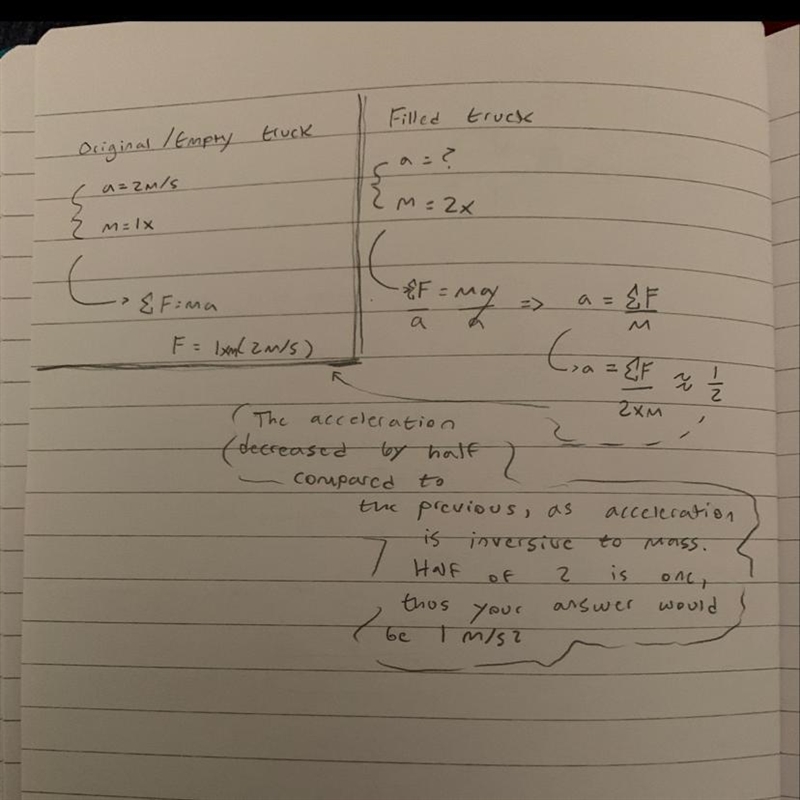 Original/Empty truck
a = 2m/s
m = 1x
→ ΣF = ma
F = 1xm(2m/s)
Filled truck
a = ?
m = 2x
ΣF = ma => a = ΣF
a a m
→ a = ΣF ≈ 1
2xm 2
The acceleration
decreased by half
compared to
the previous, as acceleration
is inversive to mass.
Half of 2 is one,
thus your answer would
be 1 m/s2